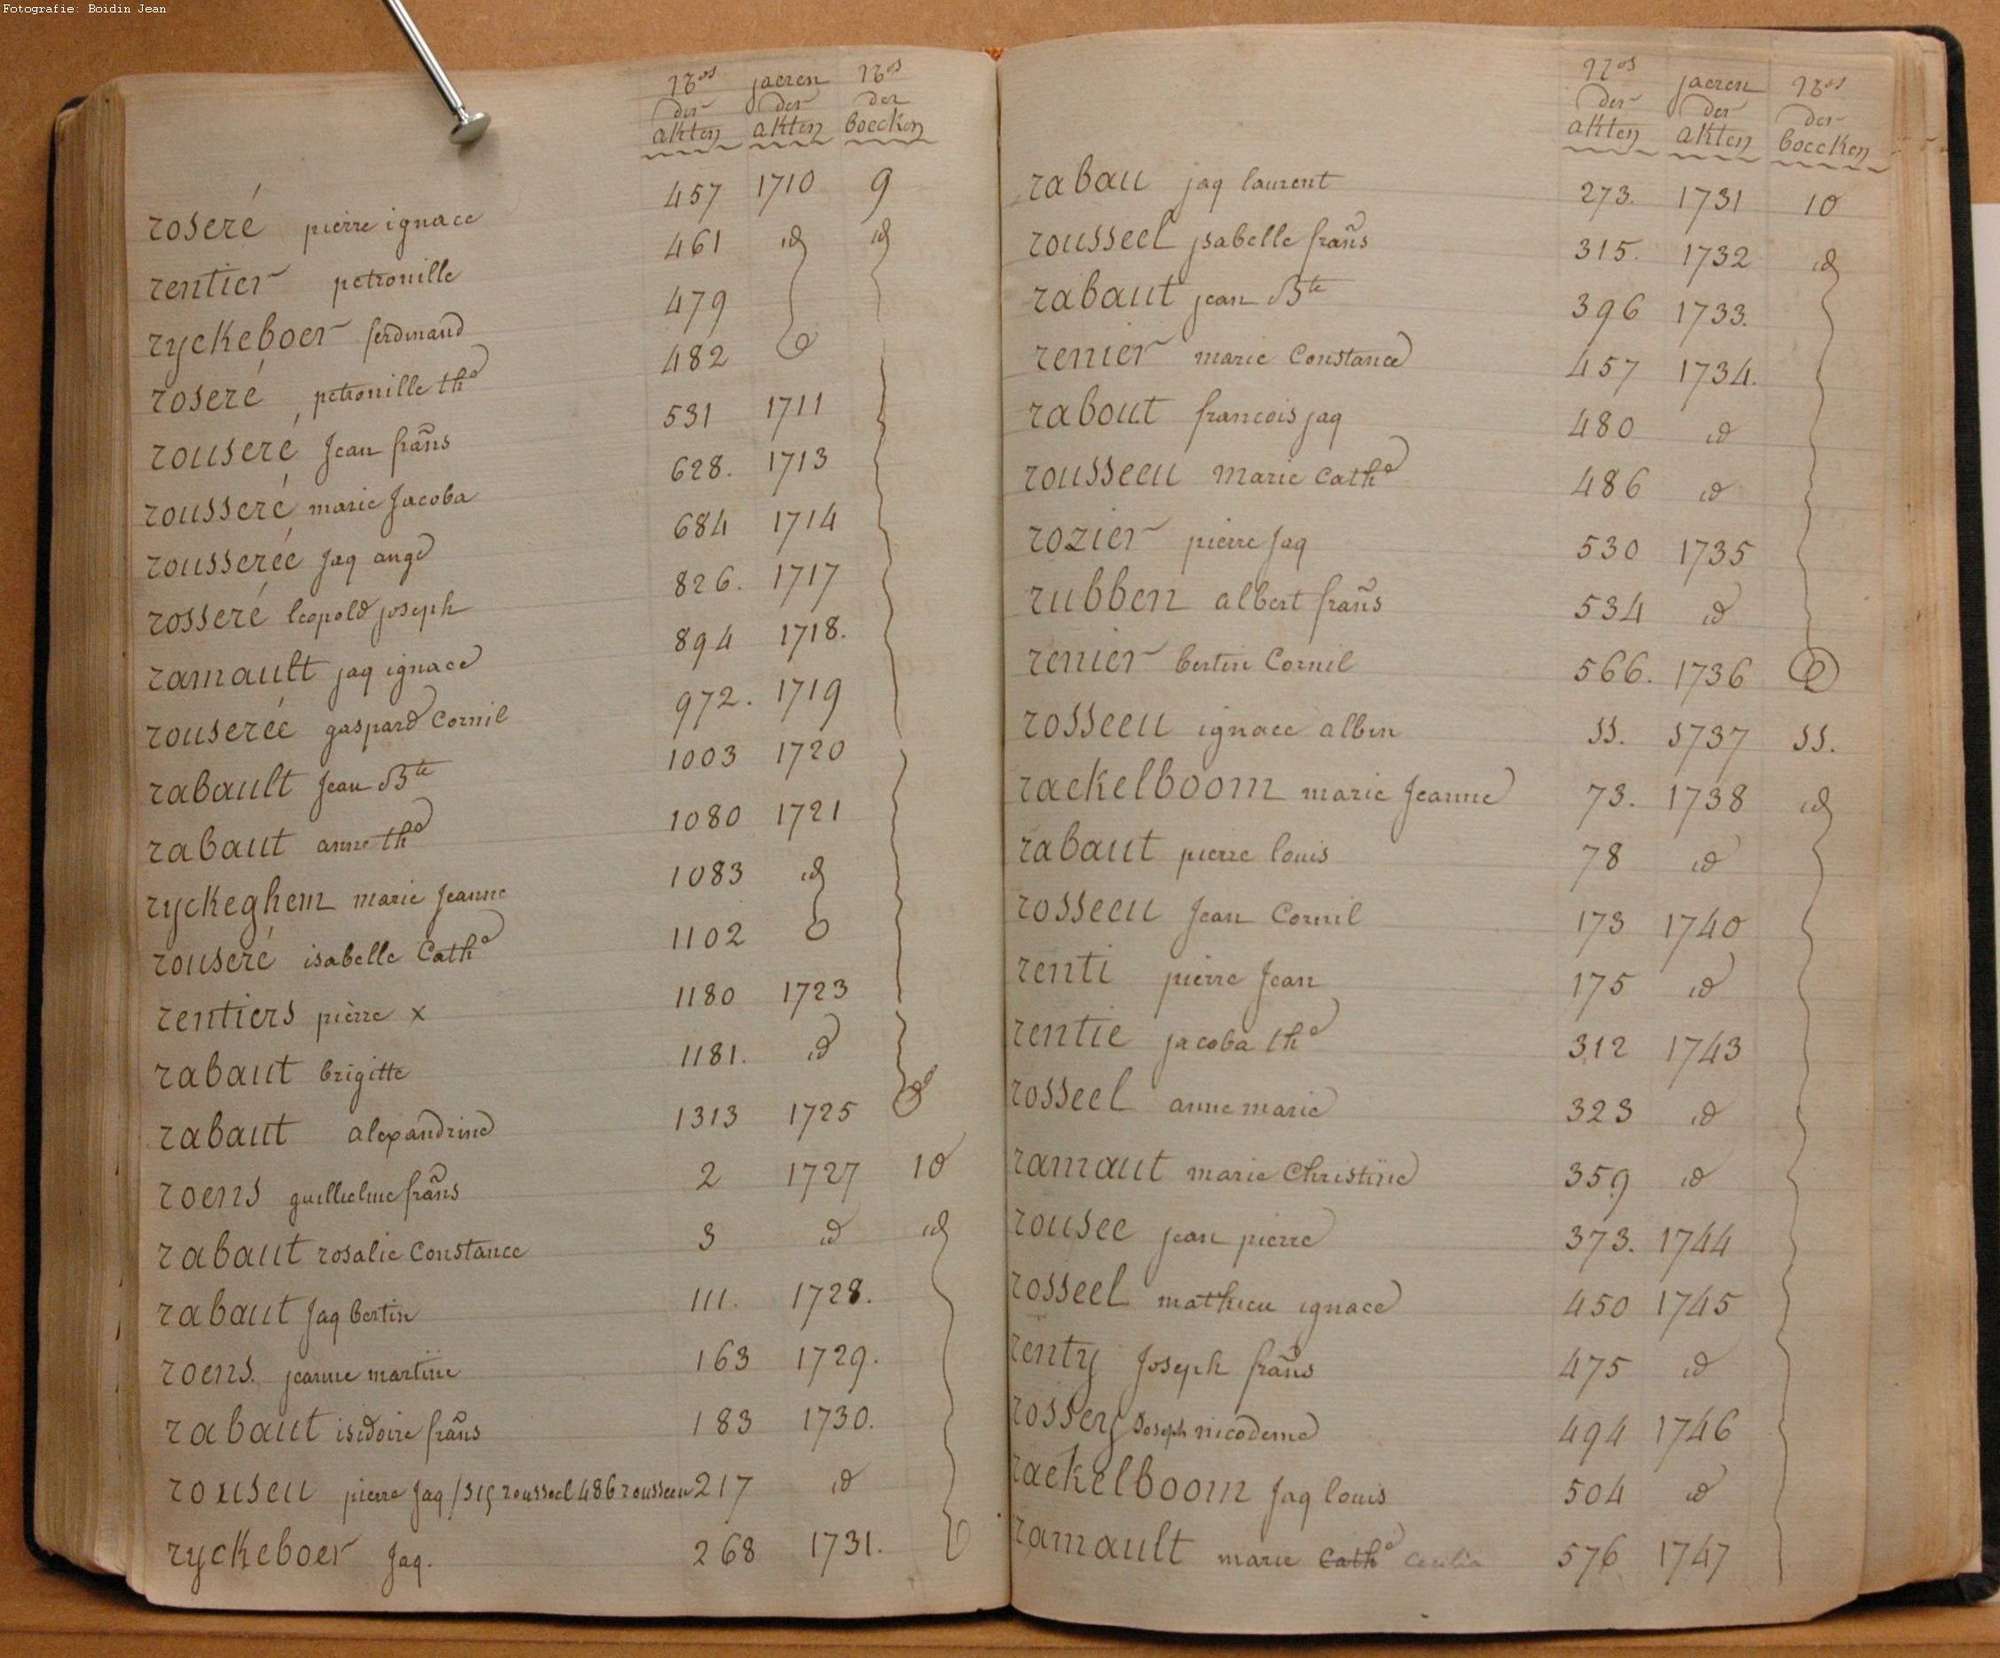 Fotografie: Boidin Jean
Nos jaeren Nos
der der der
akten akten boecken
roseré pierre ignace 457 1710 9
rentier petronille 461 id id
ryckeboer ferdinand 479
roseré petronille the 482
rouseré Jean frans 531 1711
rousseré marie Jacoba 628. 1713
rousserée Jaq ange 684 1714
rosseré leopold joseph 826. 1717
ramault jaq ignace 894 1718.
rouserée gaspard Cornil 972. 1719
rabault Jean Bte 1003 1720
rabaut anne the 1080 1721
ryckeghem marie Jeanne 1083 id
rouseré isabelle Cathe 1102
rentiers pierre x 1180 1723
rabaut brigitte 1181. id
rabaut alexandrine 1313 1725
roens guillielme frans 2 1727 10
rabaut rosalie Constance 3 id id
rabaut Jaq bertin 111. 1728.
roens. jeanne martine 163 1729.
rabaut isidoire frans 183 1730.
rouseu pierre Jaq /315 rousseel 486 rousseeu 217 id
ryckeboer Jaq. 268 1731.
Nos jaeren Nos
der der der
akten akten boecken
rabau jaq laurent 273. 1731 10
rousseel jsabelle frans 315. 1732 id
rabaut jean Bte 396 1733.
renier marie Constance 457 1734.
rabout francois jaq 480 id
rousseeu Marie Cathe 486 id
rozier pierre Jaq 530 1735
rubben albert frans 534 id
renier bertin Cornil 566. 1736
rosseeu ignace albin 11. 1737 11.
raekelboom marie Jeanne 73. 1738 id
rabaut pierre louis 78 id
rosseeu Jean Cornil 173 1740
renti pierre Jean 175 id
rentie jacoba the 312 1743
rosseel anne marie 323 id
ramaut marie Christine 359 id
rousee jean pierre 373. 1744
rosseel mathieu ignace 450 1745
renty Joseph frans 475 id
rossey Joseph nicodeme 494 1746
raekelboom Jaq louis 504 id
ramault marie Cathe Cecilia 576 1747